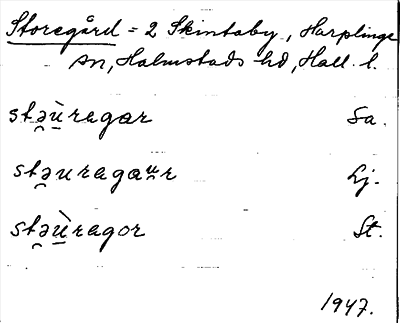 Storegård = 2 Skintaby, Harplinge
sn, Halmstads hd, Hall. l.
stə̯ù̱ragær Sa.
stə̯uragæu̯r Lj.
stə̯ù̱ragor St.
1947.